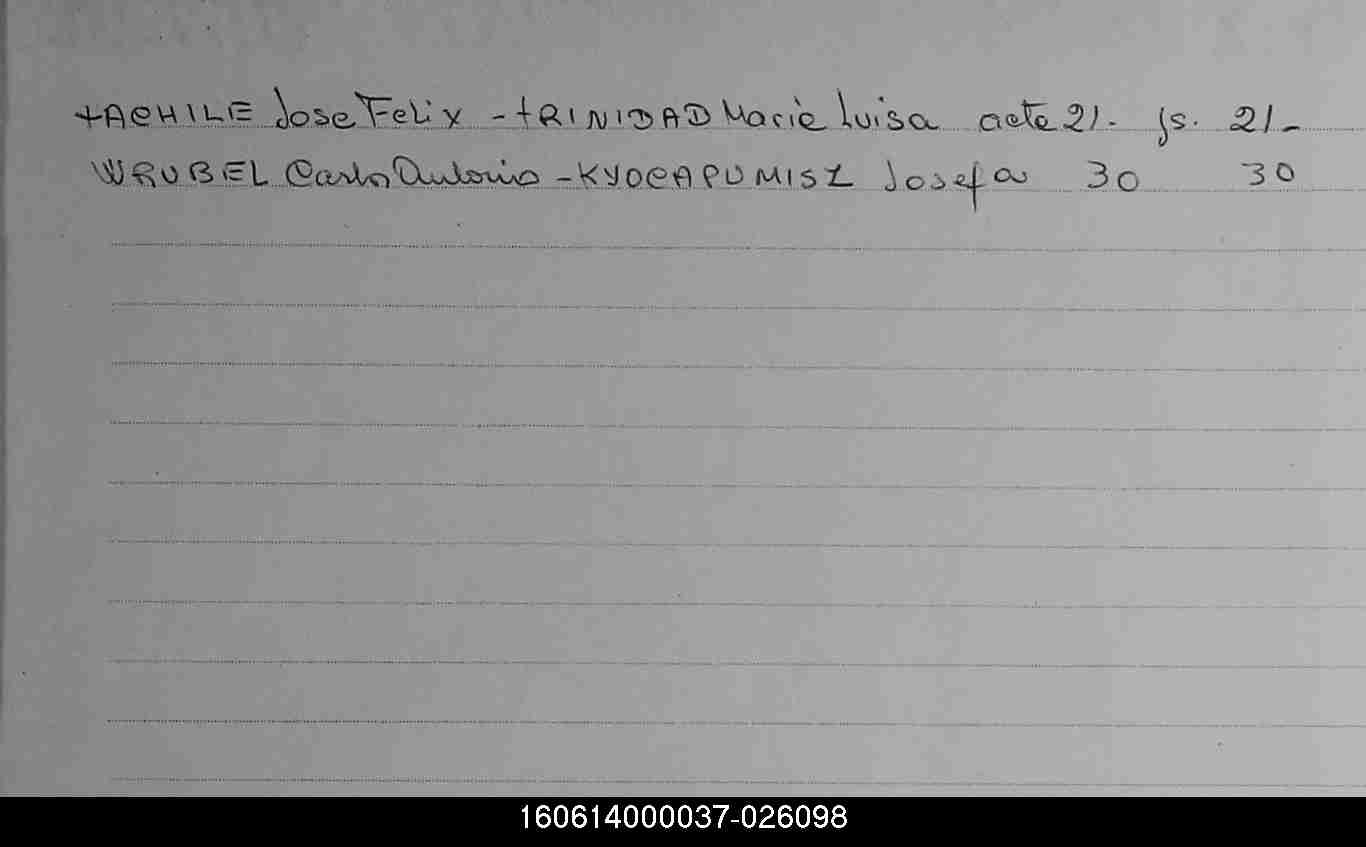 TACHILE Jose Felix - TRINIDAD Maria Luisa acta 21- fs. 21-
WRUBEL Carlos Antonio - KYOCAPUMISZ Josefa 30 30
160614000037-026098